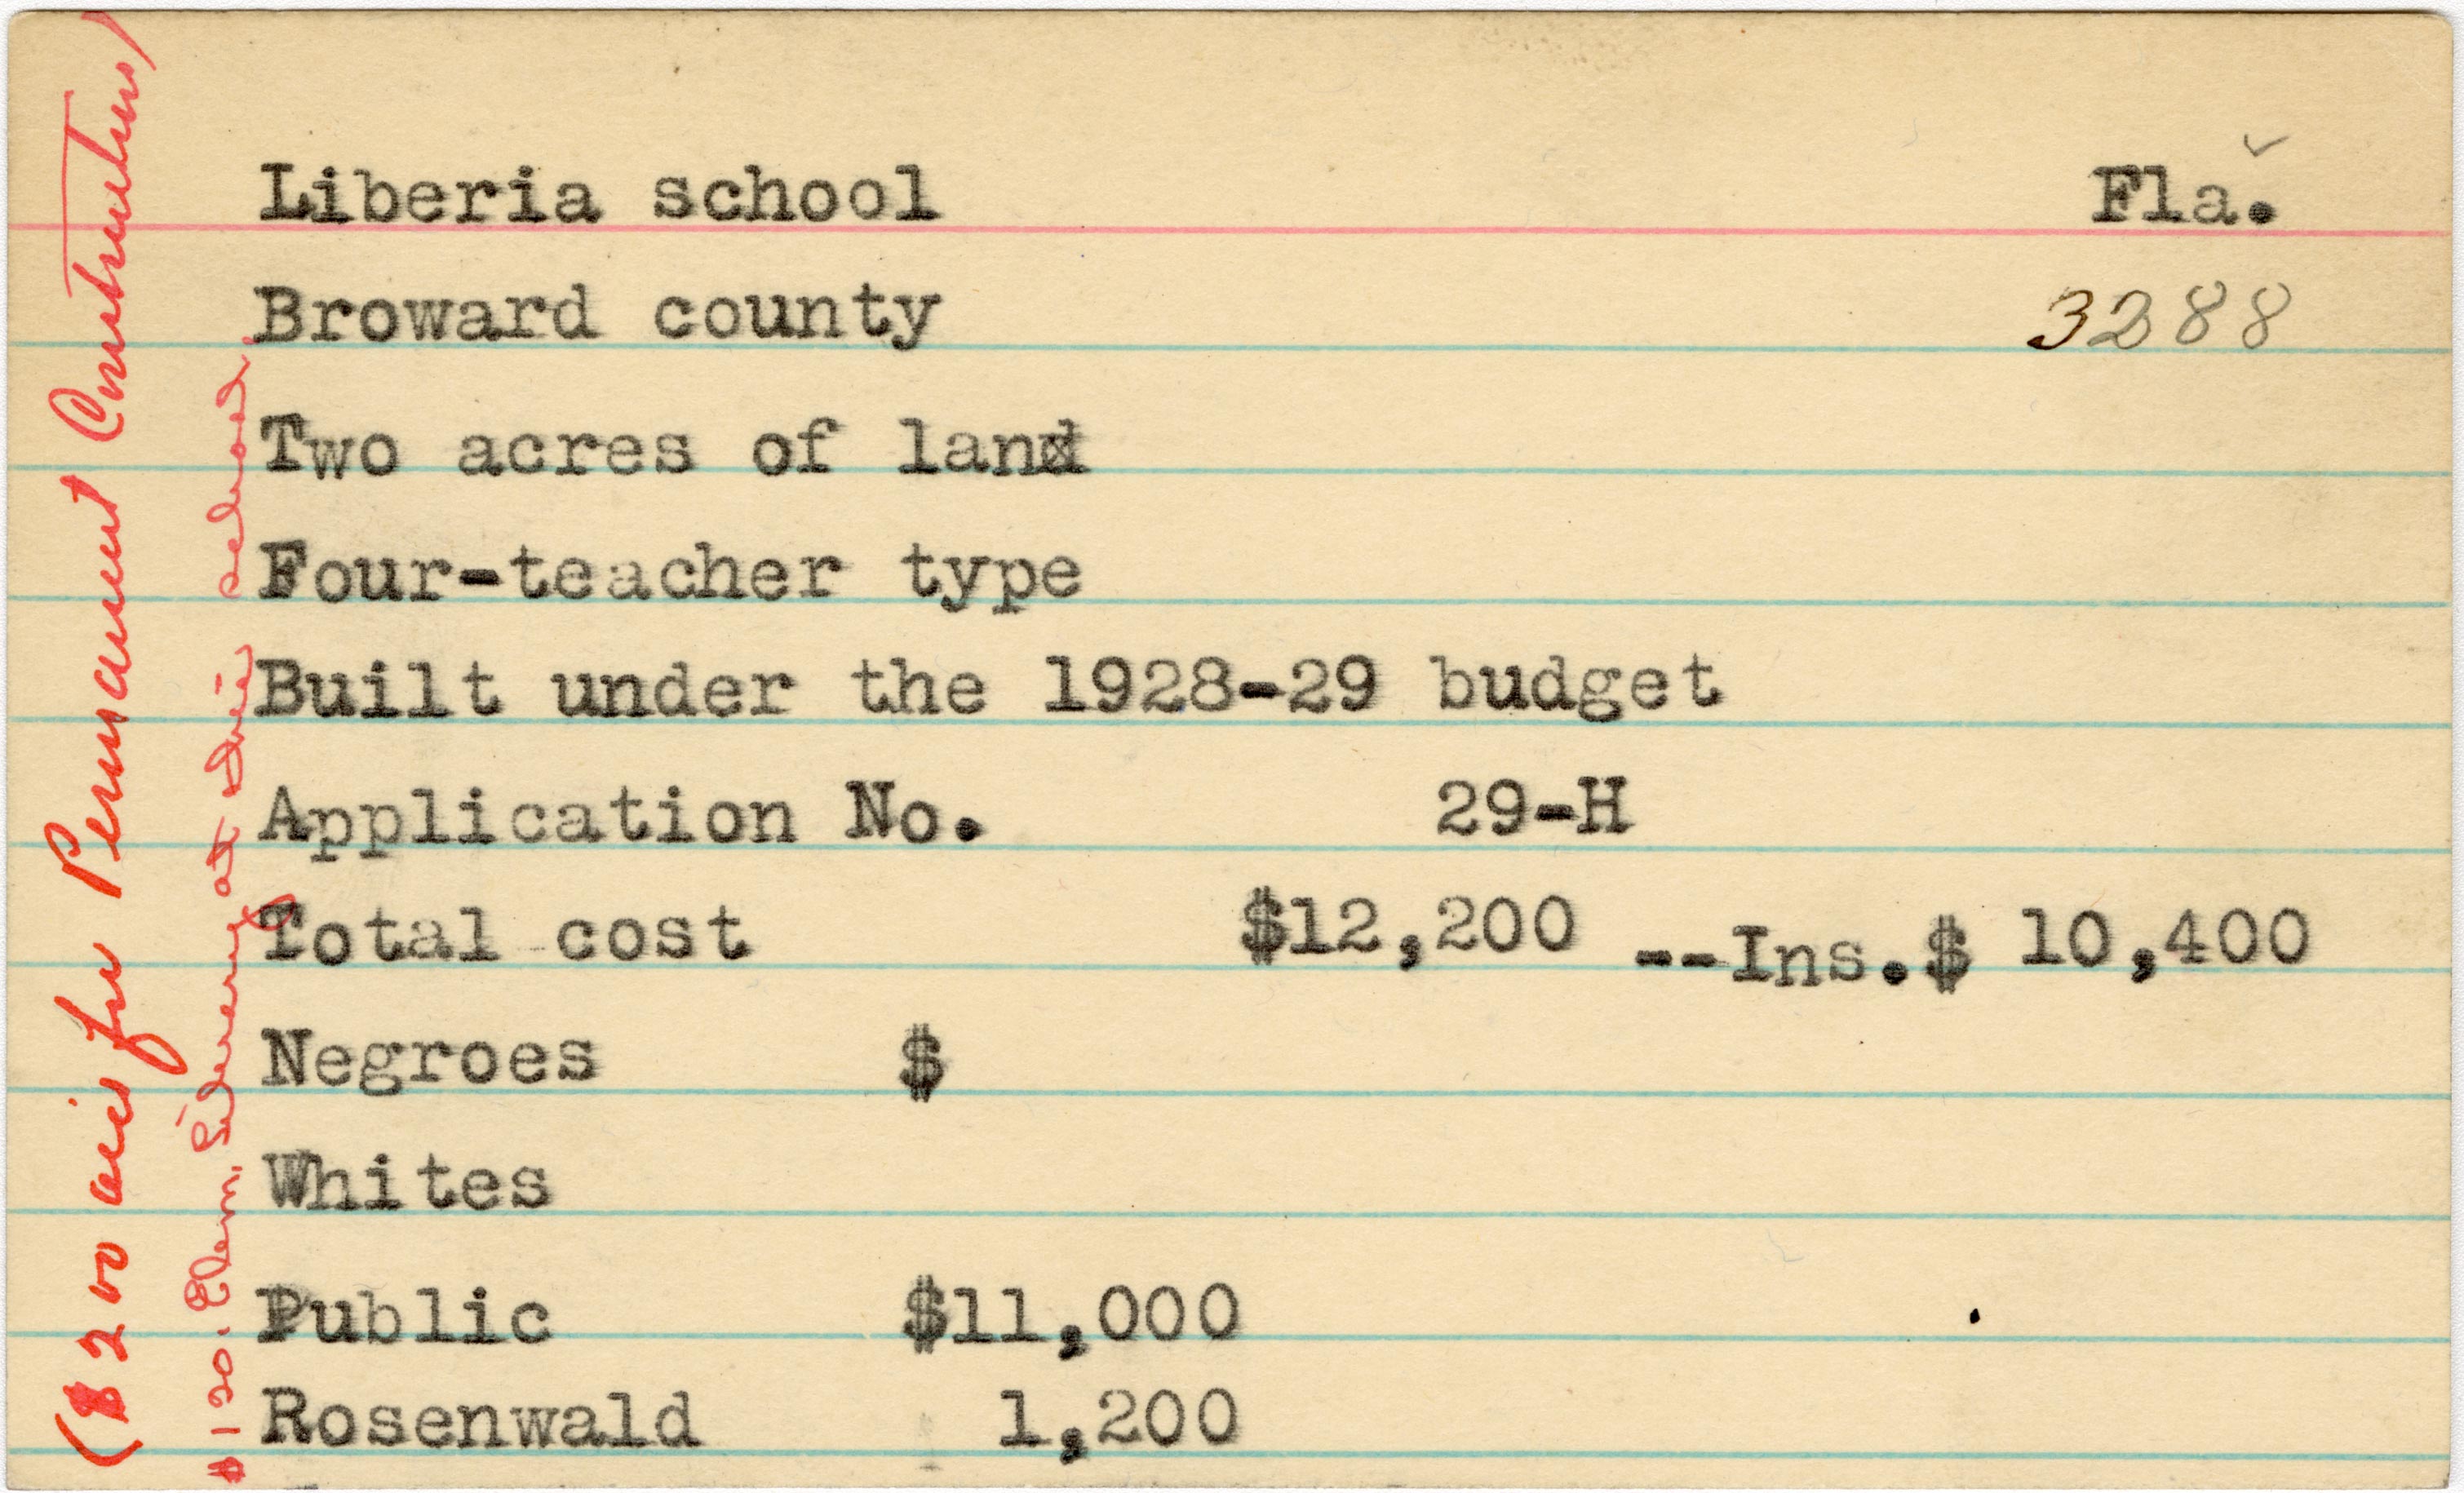 Liberia school Fla.
Broward county 3288
Two acres of land
Four-teacher type
Built under the 1928-29 budget
Application No. 29-H
Total cost $12,200 --Ins.$ 10,400
Negroes $
Whites
Public $11,000
Rosenwald 1,200
($200 aid for Permanent Construction)
$120. Elem. Library at this school.